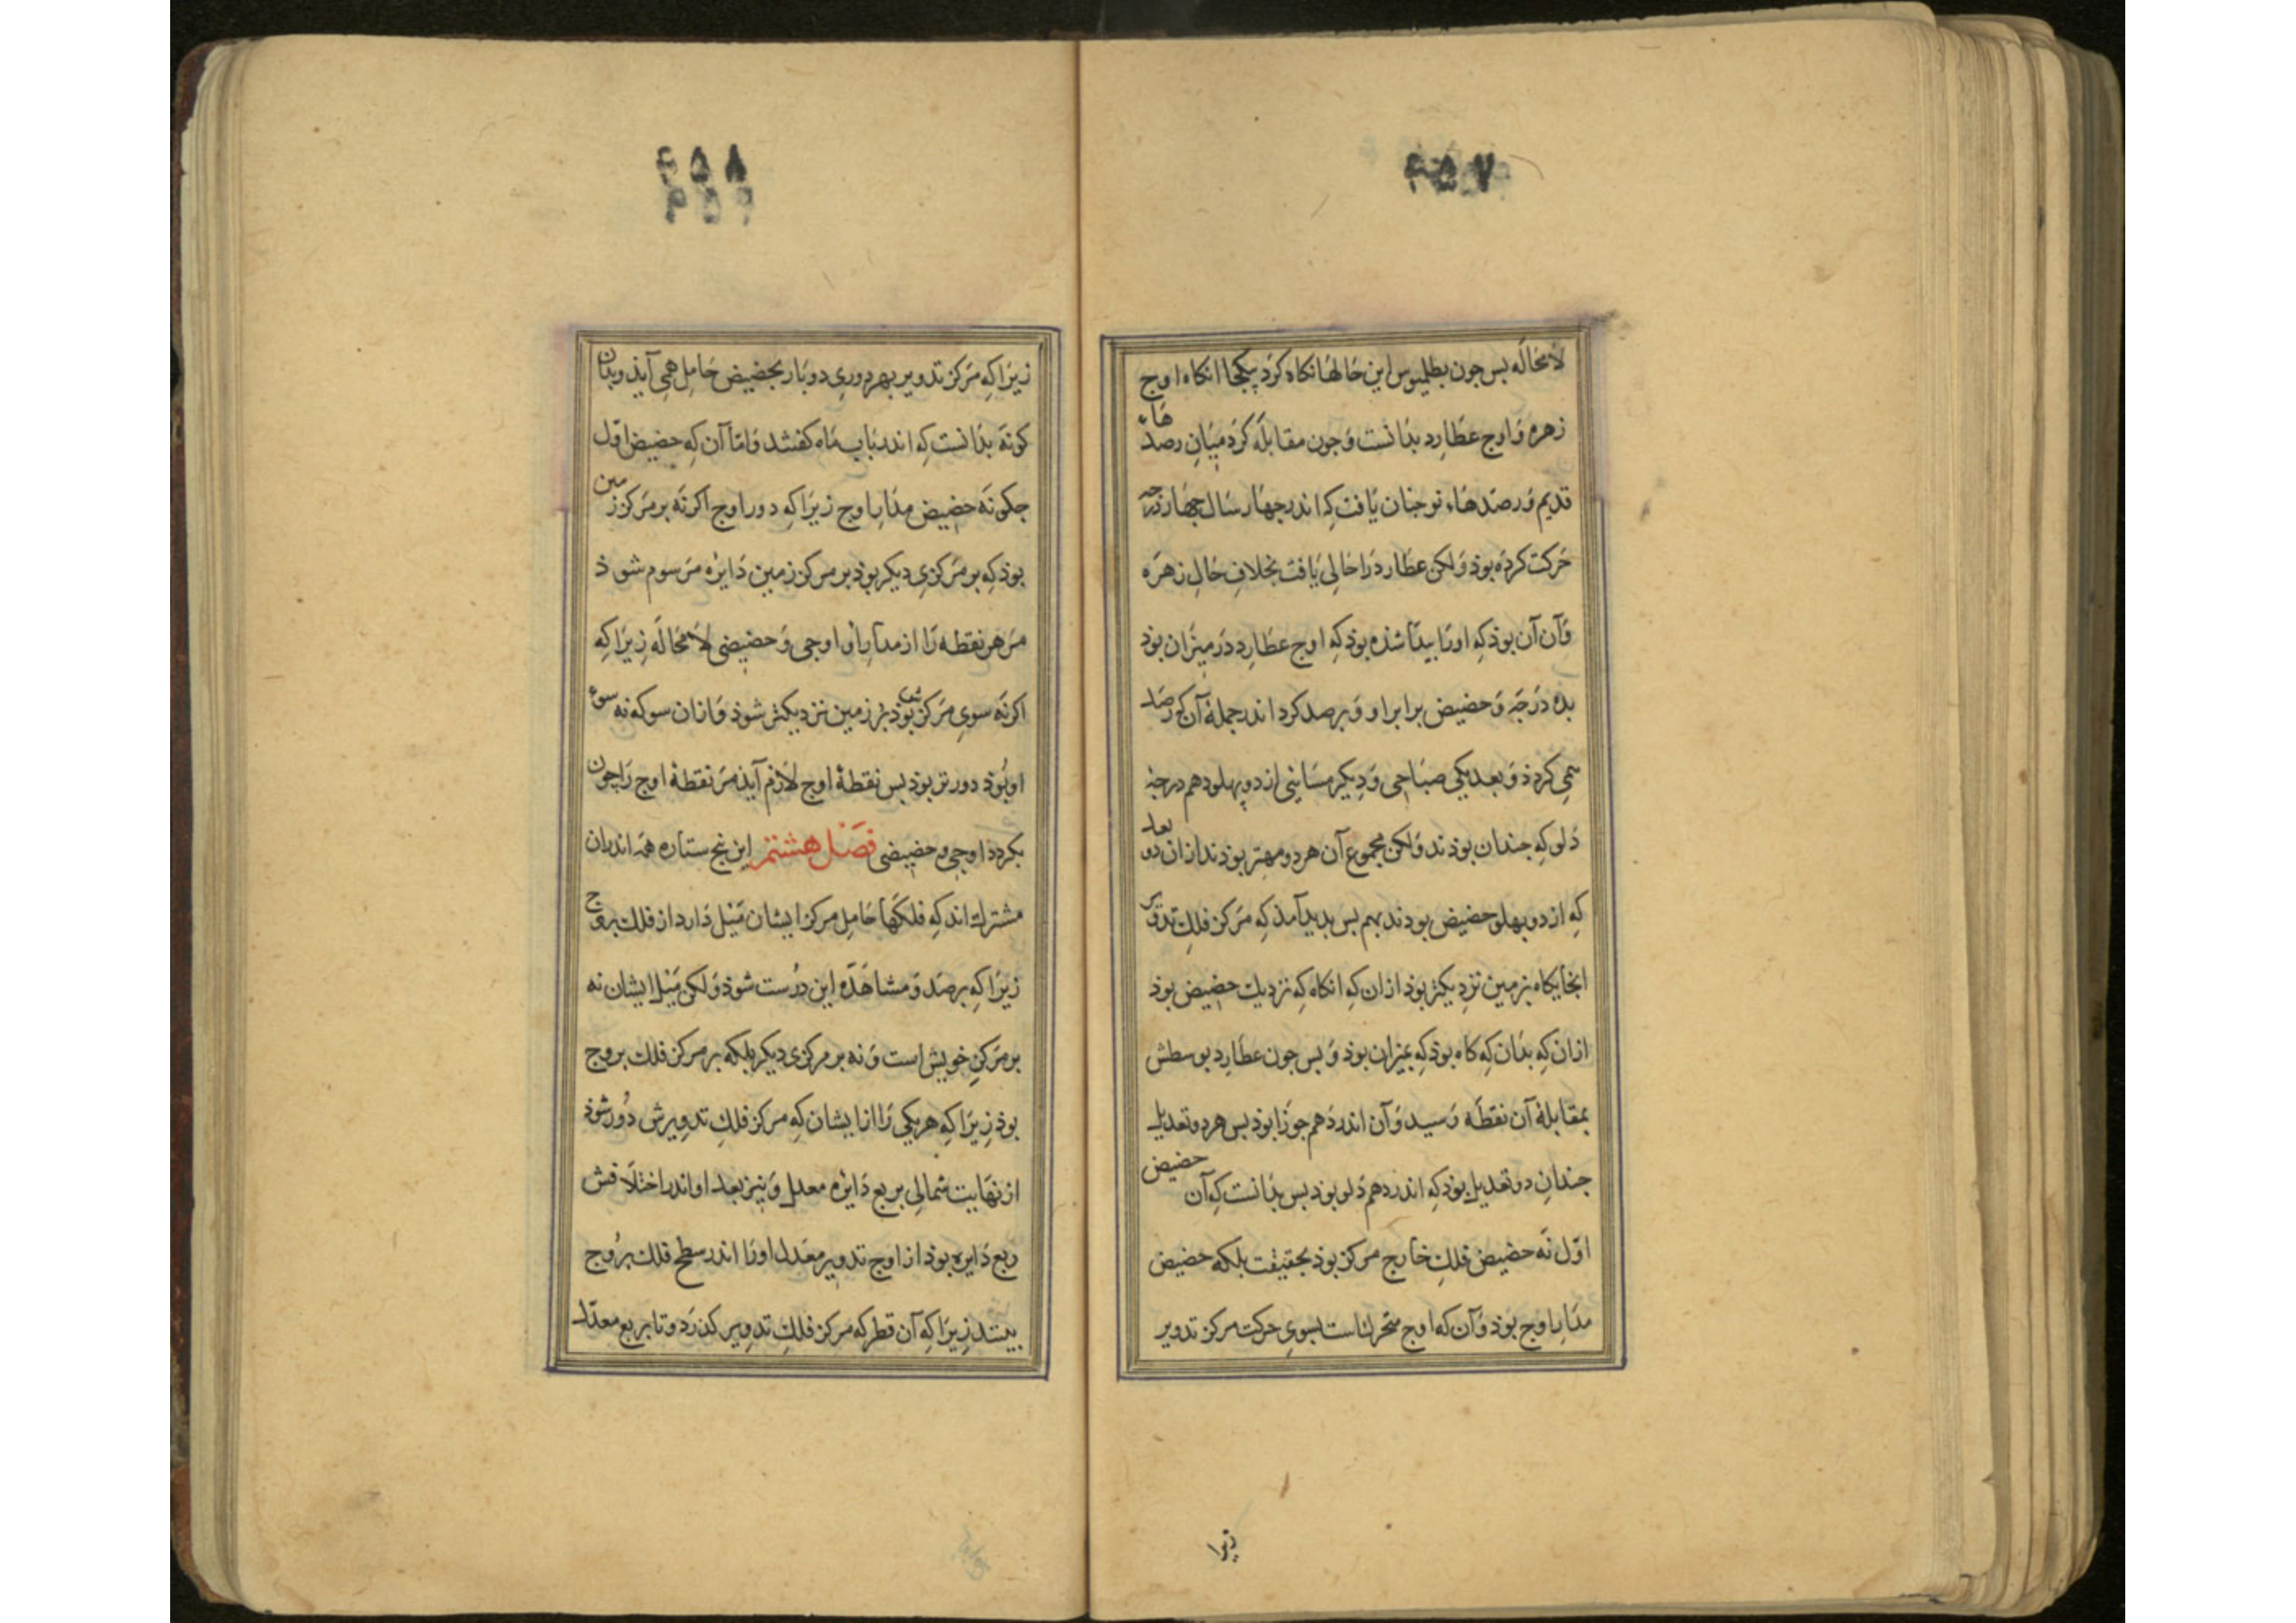 ۴۵۷
لامحاله بس جون بطلمیوس این حالها نکاه کرد بیکجا انکاه اوج
زهره و اوج عطارد بدانست و جون مقابله کرد میان رصدهاء
قدیم و رصدهاء نو جنان یافت که اندر جهار سال جهار درجه
حرکت کرده بوذ ولکن عطارد را حالی یافت بخلاف حال زهره
و آن آن بوذ که اورا بیدا شذه بوذ که اوج عطارد در میزان بوذ
بده درجه و حضیض برابر او و برصد کرد اندر جملهٔ آن که رصد
همی کرد ذ و بعد یکی صباحی و دیکر مسائی از دو بهلو دهم درجهٔ
دلو که جندان بوذند ولکن مجموع آن هر دو مهتر بوذند ازان دو بعد
که از دو بهلو حضیض بوذند بهم بس بدید آمذ که مرکز فلک تدویر
اینجایکاه بزمین نزدیکتر بوذ ازان که انکاه که نزدیک حضیض بوذ
ازان که بدان که کاه بوذ که بمیزان بوذ و بس جون عطارد بوسطش
بمقابلهٔ آن نقطه رسید و آن اندر دهم جوزا بوذ بس هر دو تعدیل
جندان دو تعدیل بوذ که اندر دهم دلو بوذ بس بدانست که آن حضیض
اول نه حضیض فلک خارج مرکز بوذ بحقیقت بلکه حضیض
مدار اوج بوذ و آن که اوج متحرک است بسوی حرکت مرکز تدویر
زیرا
۴۵۸
زیرا که مرکز تدویر بهر دوری دو بار بحضیض حامل همی آیذ و بدان
کونه بدانست که اندر باب ماه کفتند و اما آن که حضیض اول
جکونه حضیض مدار اوج زیرا که دور اوج اکر نه بر مرکز زمین
بوذ که بر مرکزی دیکر بوذ بر مرکز زمین دایره مرسوم شوذ
مر هر نقطه را از مدار او اوجی و حضیضی لامحاله زیرا که
اکر نه سوی مرکز بوذ بزمین نزدیکتر شوذ و ازان سو که نه سوء
او بوذ دورتر بوذ بس نقطهٔ اوج لازم آیذ مر نقطهٔ اوج را جون
بکردد اوجی و حضیضی فصل هشتم این بنج ستاره همه اندران
مشترک اند که فلکها حامل مرکز ایشان میل دارد از فلک بروج
زیرا که برصد و مشاهده این درست شوذ ولکن میل ایشان نه
بر مرکز خویش است و نه بر مرکزی دیکر بلکه بر مرکز فلک بروج
بوذ زیرا که هر یکی را از ایشان که مرکز فلک تدویرش دور شوذ
از نهایت شمالی بربع دایره معدل و نیز بعد او اندر اختلافش
ربع دایره بوذ از اوج تدویر معدل اورا اندر سطح فلک بروج
بینند زیرا که آن قطر که مرکز فلک تدویر کذرد و تا بربع معدل